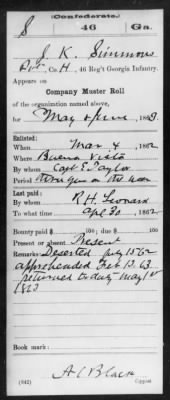 (Confederate.)
S 46 Ga.
J. K. Simmons
Pvt, Co. H, 46 Reg't Georgia Infantry.
Appears on
Company Muster Roll
of the organization named above,
for May & June, 1863.
Enlisted:
When Mar 4, 1862
Where Buena Vista
By whom Capt E. Taylor
Period
Last paid:
By whom R. H. Leonard
To what time Apl 30, 1862
Bounty paid $ 100; due $ 100
Present or absent Present
Remarks: Deserted July 15 62
apprehended Feb 13. 63
returned to duty May 1st
1863
Book mark:
(642) A C Black
Copyist.